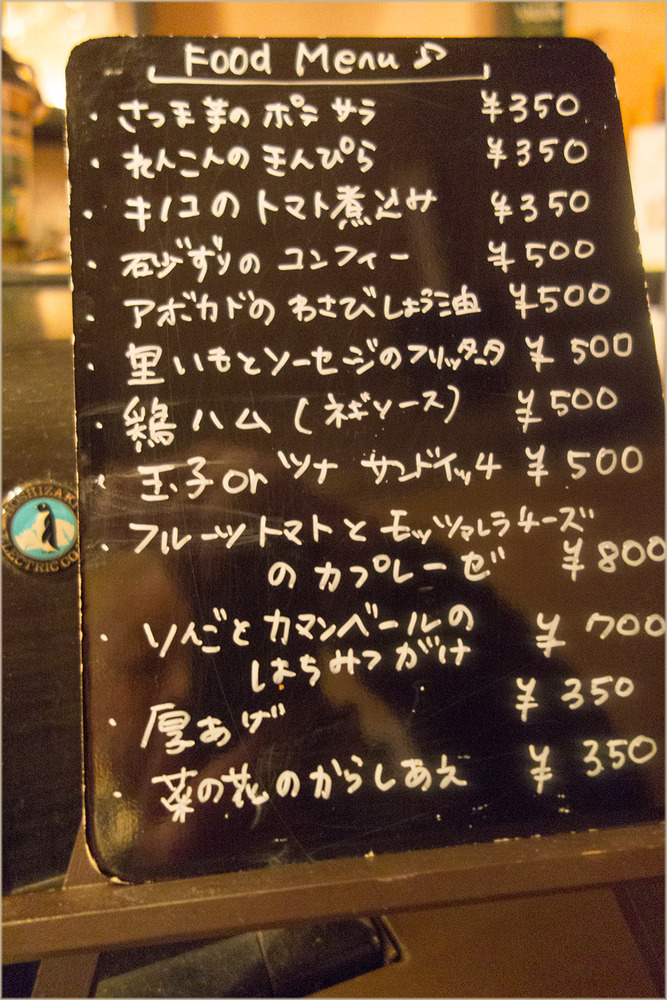 Food Menu ♪
・さつま芋のポテサラ ¥350
・れんこんのきんぴら ¥350
・キノコのトマト煮込み ¥350
・石づずりのコンフィー ¥500
・アボカドのわさびしょう油 ¥500
・里いもとソーセージのフリッタータ ¥500
・鶏ハム(ネギソース) ¥500
・玉子or ツナ サンドイッチ ¥500
・フルーツトマトとモッツァレラチーズ
のカプレーゼ ¥800
・りんごとカマンベールの ¥700
はちみつがけ
・厚あげ ¥350
・菜の花のからしあえ ¥350
HOSHIZAKI
ELECTRIC CO